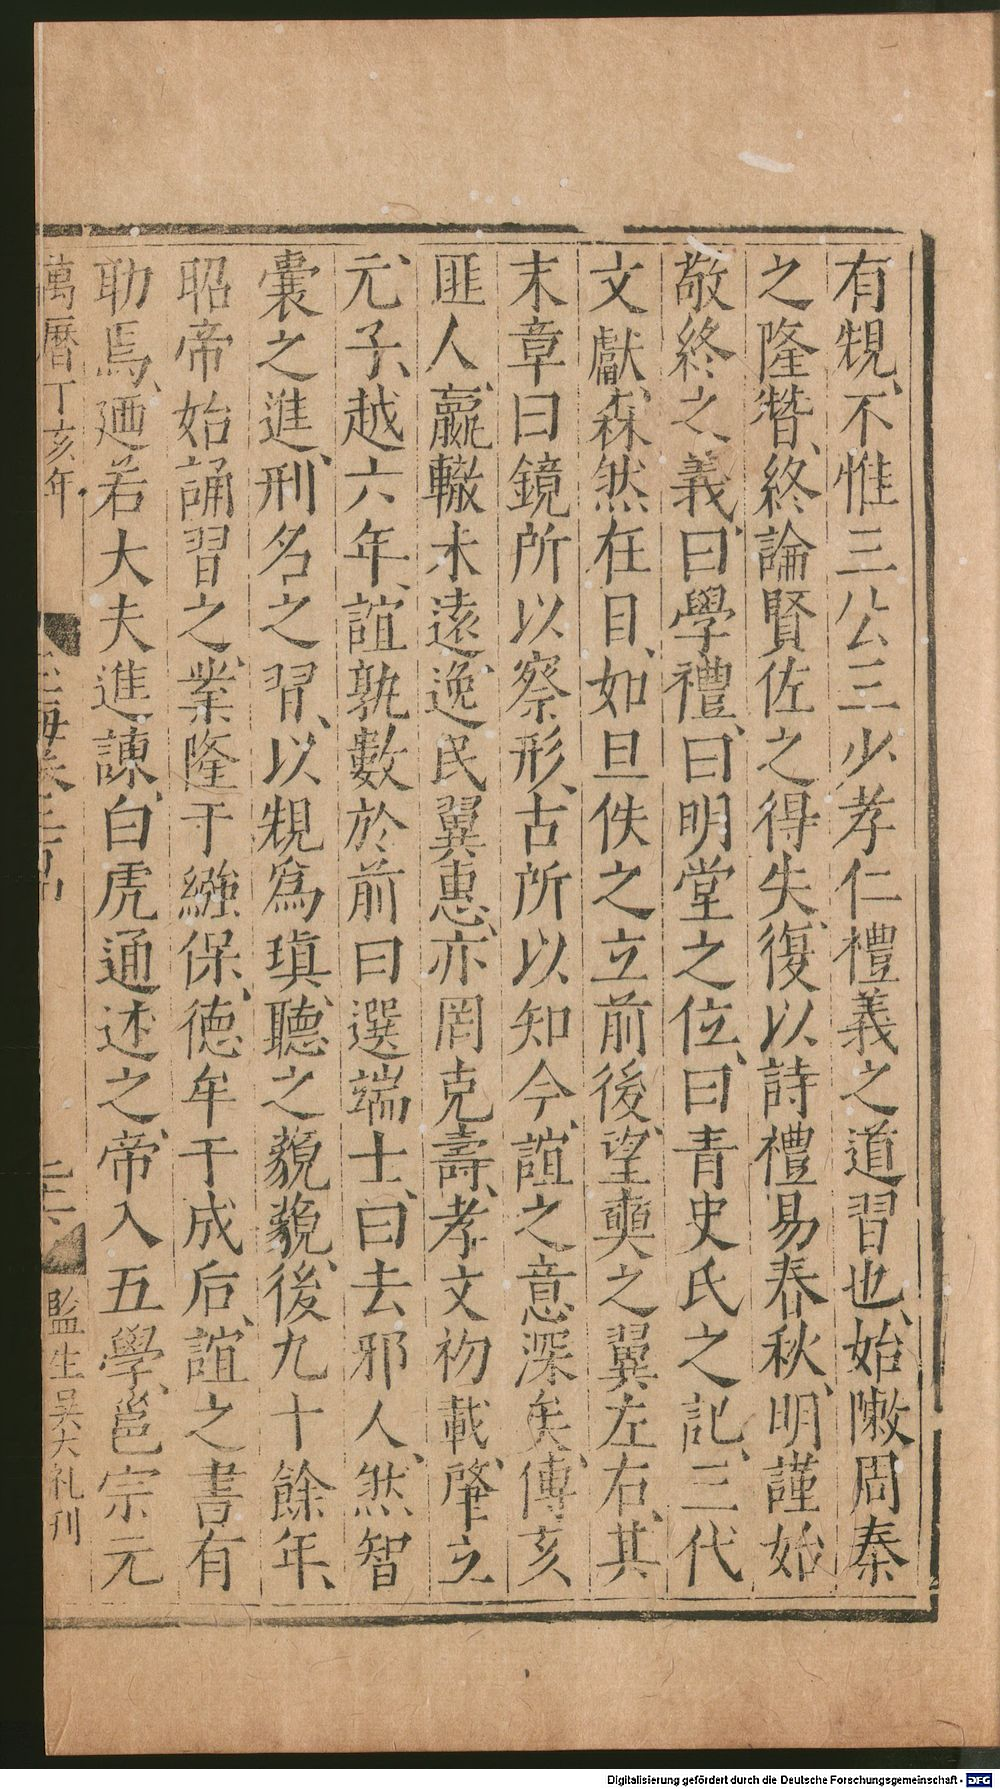 有䂓、不惟三公三少孝仁禮義之道習也、始㪘周秦
之隆朁、終論賢佐之得失、復以詩禮易春秋、明謹始
敬終之義、曰學禮、曰明堂之位、曰青史氏之記、三代
文獻、森然在目、如旦佚之立前後、望奭之翼左右、其
末章曰鏡所以察形、古所以知今、誼之意深矣、傅亥
匪人、嬴轍未遠、逸民翼惠、亦罔克壽、孝文初載、肇立
元子、越六年、誼孰數於前曰選端士、曰去邪人、然智
囊之進、刑名之習、以䂓爲瑱、聽之藐藐、後九十餘年、
昭帝始誦習之、業隆于繈保、德牟于成后、誼之書有
助焉、廼若大夫進諫、白虎通述之、帝入五學、邕宗元
萬曆丁亥年
監生吳大礼刊
Digitalisierung gefördert durch die Deutsche Forschungsgemeinschaft - DFG